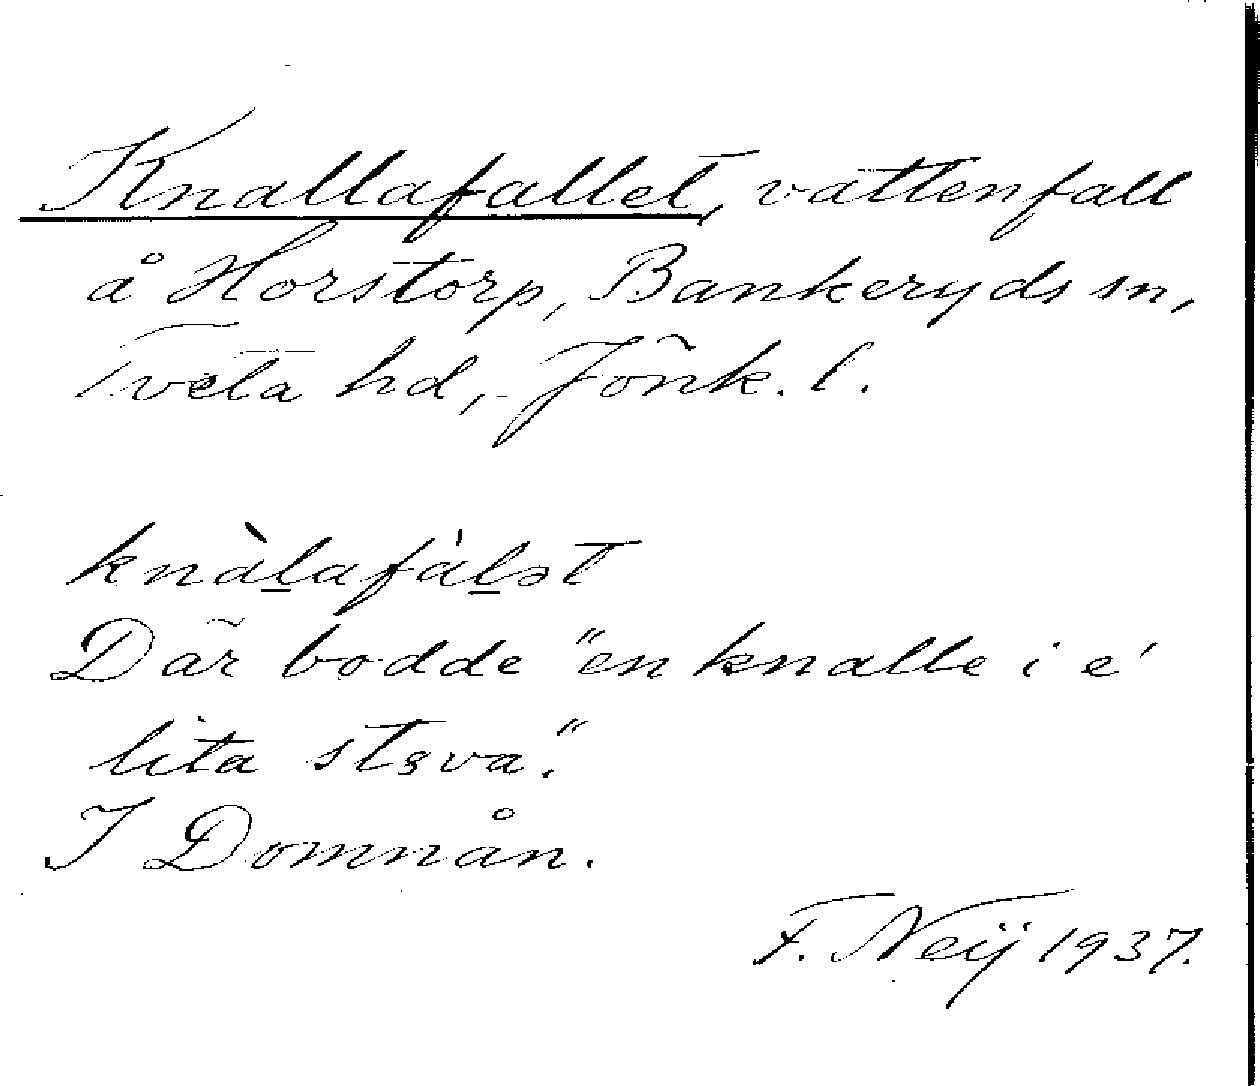 Knallafallet, vattenfall
å Horstorp, Bankeryds sn,
Tveta hd, Jönk. l.
knàl̲afàl̲ət
Där bodde "en knalle i e'
lita stɜva."
I Domnån.
F. Neij 1937.